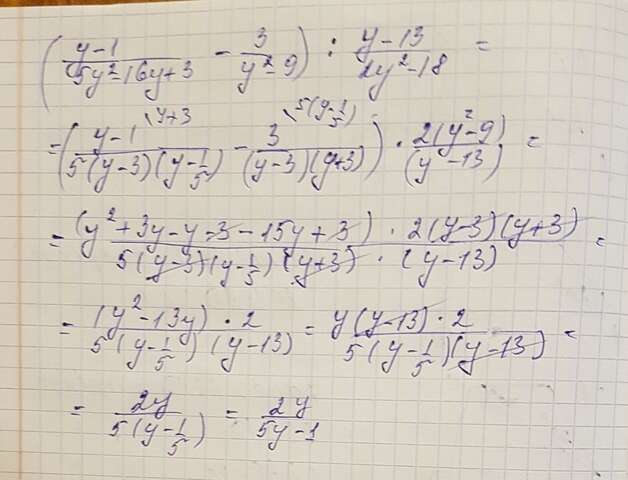 ( (y-1)/(5y²-16y+3) - 3/(y²-9) ) : (y-13)/(2y²-18) =
= ( (y-1)\y+3/(5(y-3)(y-1/5)) - 3\5(y-1/5)/((y-3)(y+3)) ) · 2(y²-9)/(y-13) =
= (y²+3y-y-3-15y+3) · 2(y-3)(y+3)/(5(y-3)(y-1/5)(y+3) · (y-13)) =
= (y²-13y) · 2/(5(y-1/5)(y-13)) = y(y-13) · 2/(5(y-1/5)(y-13)) =
= 2y/(5(y-1/5)) = 2y/(5y-1)